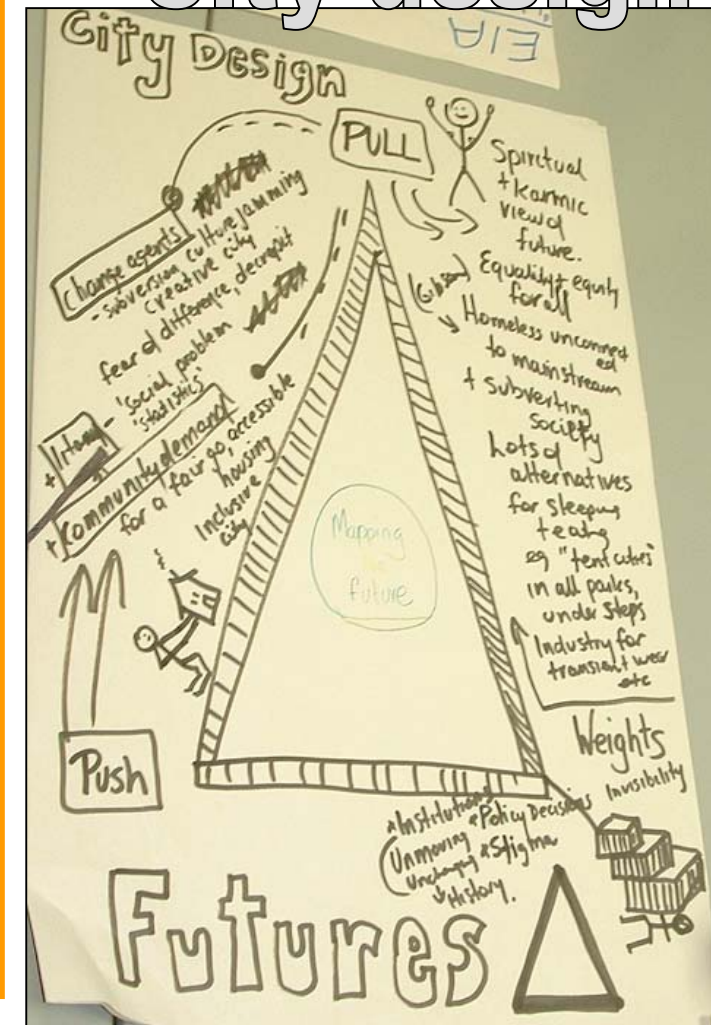 City design
EIA
City Design
PULL
Spirctual
+ karmic
view of
future.
Equality + equity
for all
(Gibson)
Homeless unconnected
to mainstream
+ subverting
society
Lots of
alternatives
for sleeping
+ eating
eg "tent cities"
in all parks,
under steps
Industry for
transient wear
etc
Change agents
- subversion culture jamming
creative city
fear of difference, decrepit
+ litany - 'social problem'
'statistics'
+ Kommunity demand
for a fair go, accessible
housing
Inclusive
city
Mapping
future
Push
Weights
Invisibility
* Institutions
* Policy Decisions
(Unmoving * Stigma
Unchanging
History.
Futures